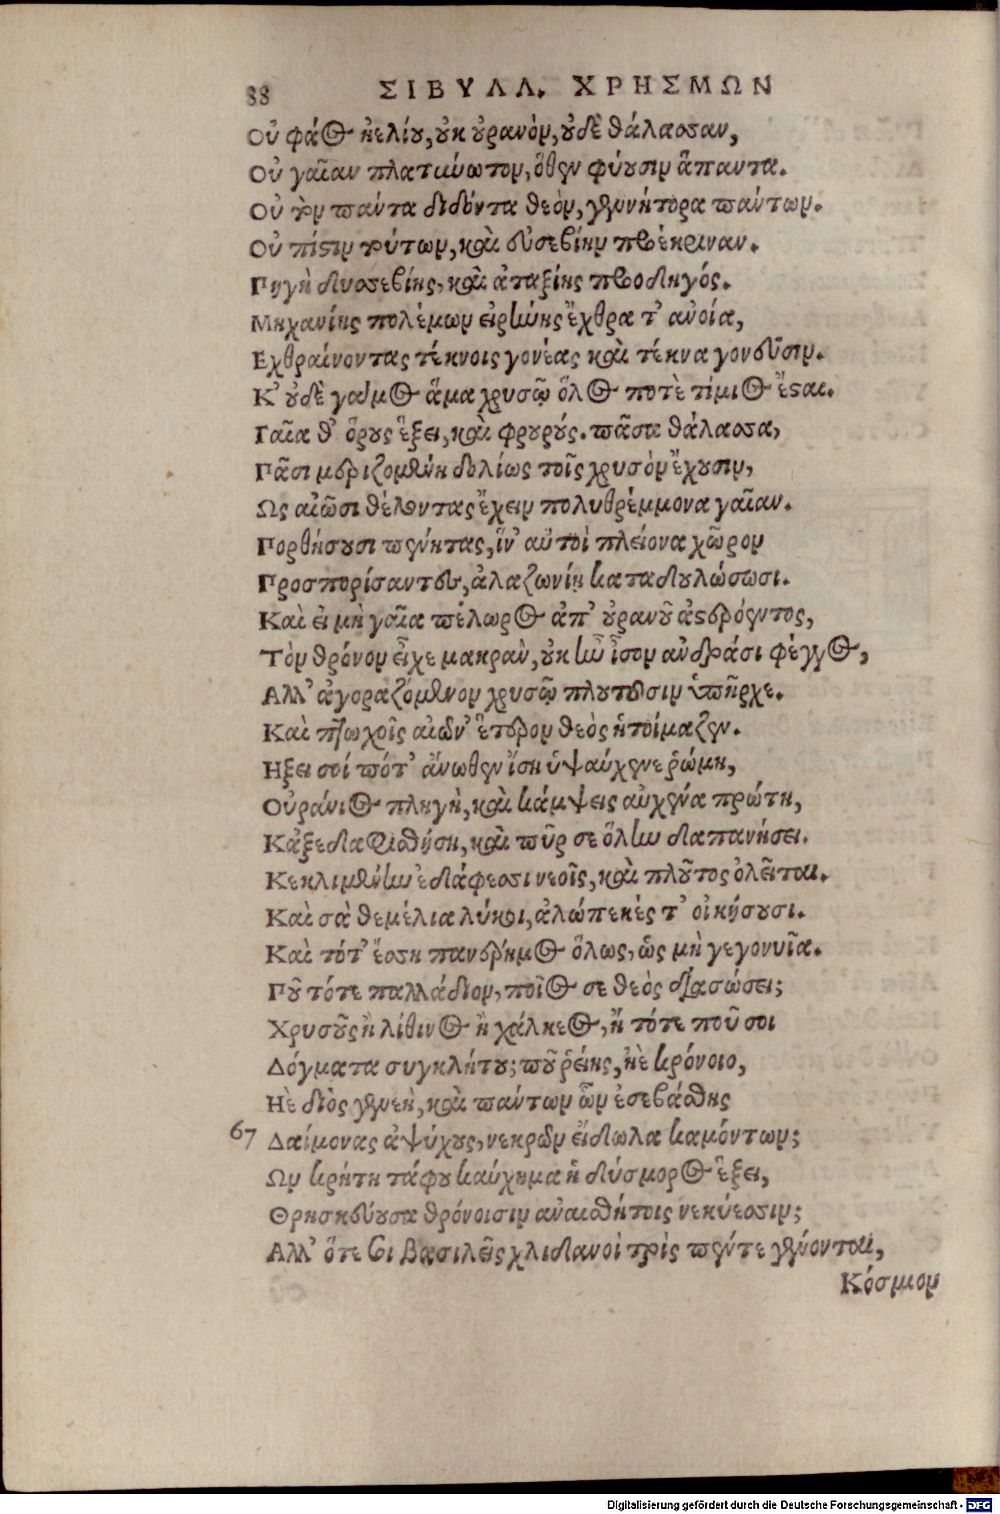 88 ΣΙΒΥΛΛ. ΧΡΗΣΜΩΝ
Οὐ φάος ἠελίου, οὐκ οὐρανὸν, οὐδὲ θάλασσαν,
Οὐ γαῖαν πλατύνωτον, ὅθεν φύουσιν ἅπαντα.
Οὐ τὸν πάντα διδόντα θεὸν, γενήτορα πάντων.
Οὐ πίστιν τούτων, καὶ εὐσεβίην προέκριναν.
Πηγὴ δυσσεβίης, καὶ ἀταξίης προοδηγός.
Μηχανίης πολέμων εἰρήνης ἔχθρα τ' ἀνοία,
Εχθραίνοντας τέκνοις γονέας καὶ τέκνα γονεῦσιν.
Κ' οὐδὲ γάμος ἅμα χρυσῷ ὅλος ποτὲ τίμιος ἔσται.
Γαῖα θ' ὅρους ἕξει, καὶ φρουρούς. πᾶσα θάλασσα,
Πᾶσι μεριζομένη δολίως τοῖς χρυσὸν ἔχουσιν,
Ως αἰῶσι θέλοντας ἔχειν πολυθρέμμονα γαῖαν.
Πορθήσουσι πένητας, ἵν' αὐτοὶ πλείονα χῶρον
Προσπορίσαντες, ἀλαζωνίῃ καταδουλώσωσι.
Καὶ εἰ μὴ γαῖα πέλωρος ἀπ' οὐρανοῦ ἀστερόεντος,
Τὸν θρόνον εἶχε μακρὰν, οὐκ ἦν ἶσον ἀνδράσι φέγγος,
Αλλ' ἀγοραζόμενον χρυσῷ πλουτοῦσιν ὑπῆρχε.
Καὶ πτωχοῖς αἰῶν' ἕτερον θεὸς ἡτοίμαζεν.
Ηξει σοί πότ' ἄνωθεν ἴση ὑψαύχενε ῥώμη,
Οὐράνιος πληγὴ, καὶ κάμψεις αὐχένα πρώτη,
Κἀξεδαφισθήσῃ, καὶ πῦρ σε ὅλην δαπανήσει.
Κεκλιμένην ἐδάφεσσι νεοῖς, καὶ πλοῦτος ὀλεῖται.
Καὶ σὰ θεμέλια λύκοι, ἀλώπεκὲς τ' οἰκήσουσι.
Καὶ τότ' ἔσση πανέρημος ὅλως, ὡς μὴ γεγονυῖα.
Ποῦ τότε παλλάδιον, ποῖος σε θεὸς διασώσει;
Χρυσοῦς ἢ λίθινος ἢ χάλκεος, ἢ τότε ποῦ σοι
Δόγματα συγκλήτου; ποῦ ῥείης, ἠὲ κρόνοιο,
Ηὲ διὸς γενεὴ, καὶ πάντων ὧν ἐσεβάσθης
67 Δαίμονας ἀψύχους, νεκρῶν εἴδωλα καμόντων;
Ων κρήτη τάφου καύχημα ἡ δύσμορος ἕξει,
Θρησκεύουσα θρόνοισιν ἀναισθήτοις νεκύεσσιν;
Αλλ' ὅτε σοι βασιλεῖς χλιδανοὶ τρὶς πέντε γένονται,
Κόσμον
Digitalisierung gefördert durch die Deutsche Forschungsgemeinschaft - DFG